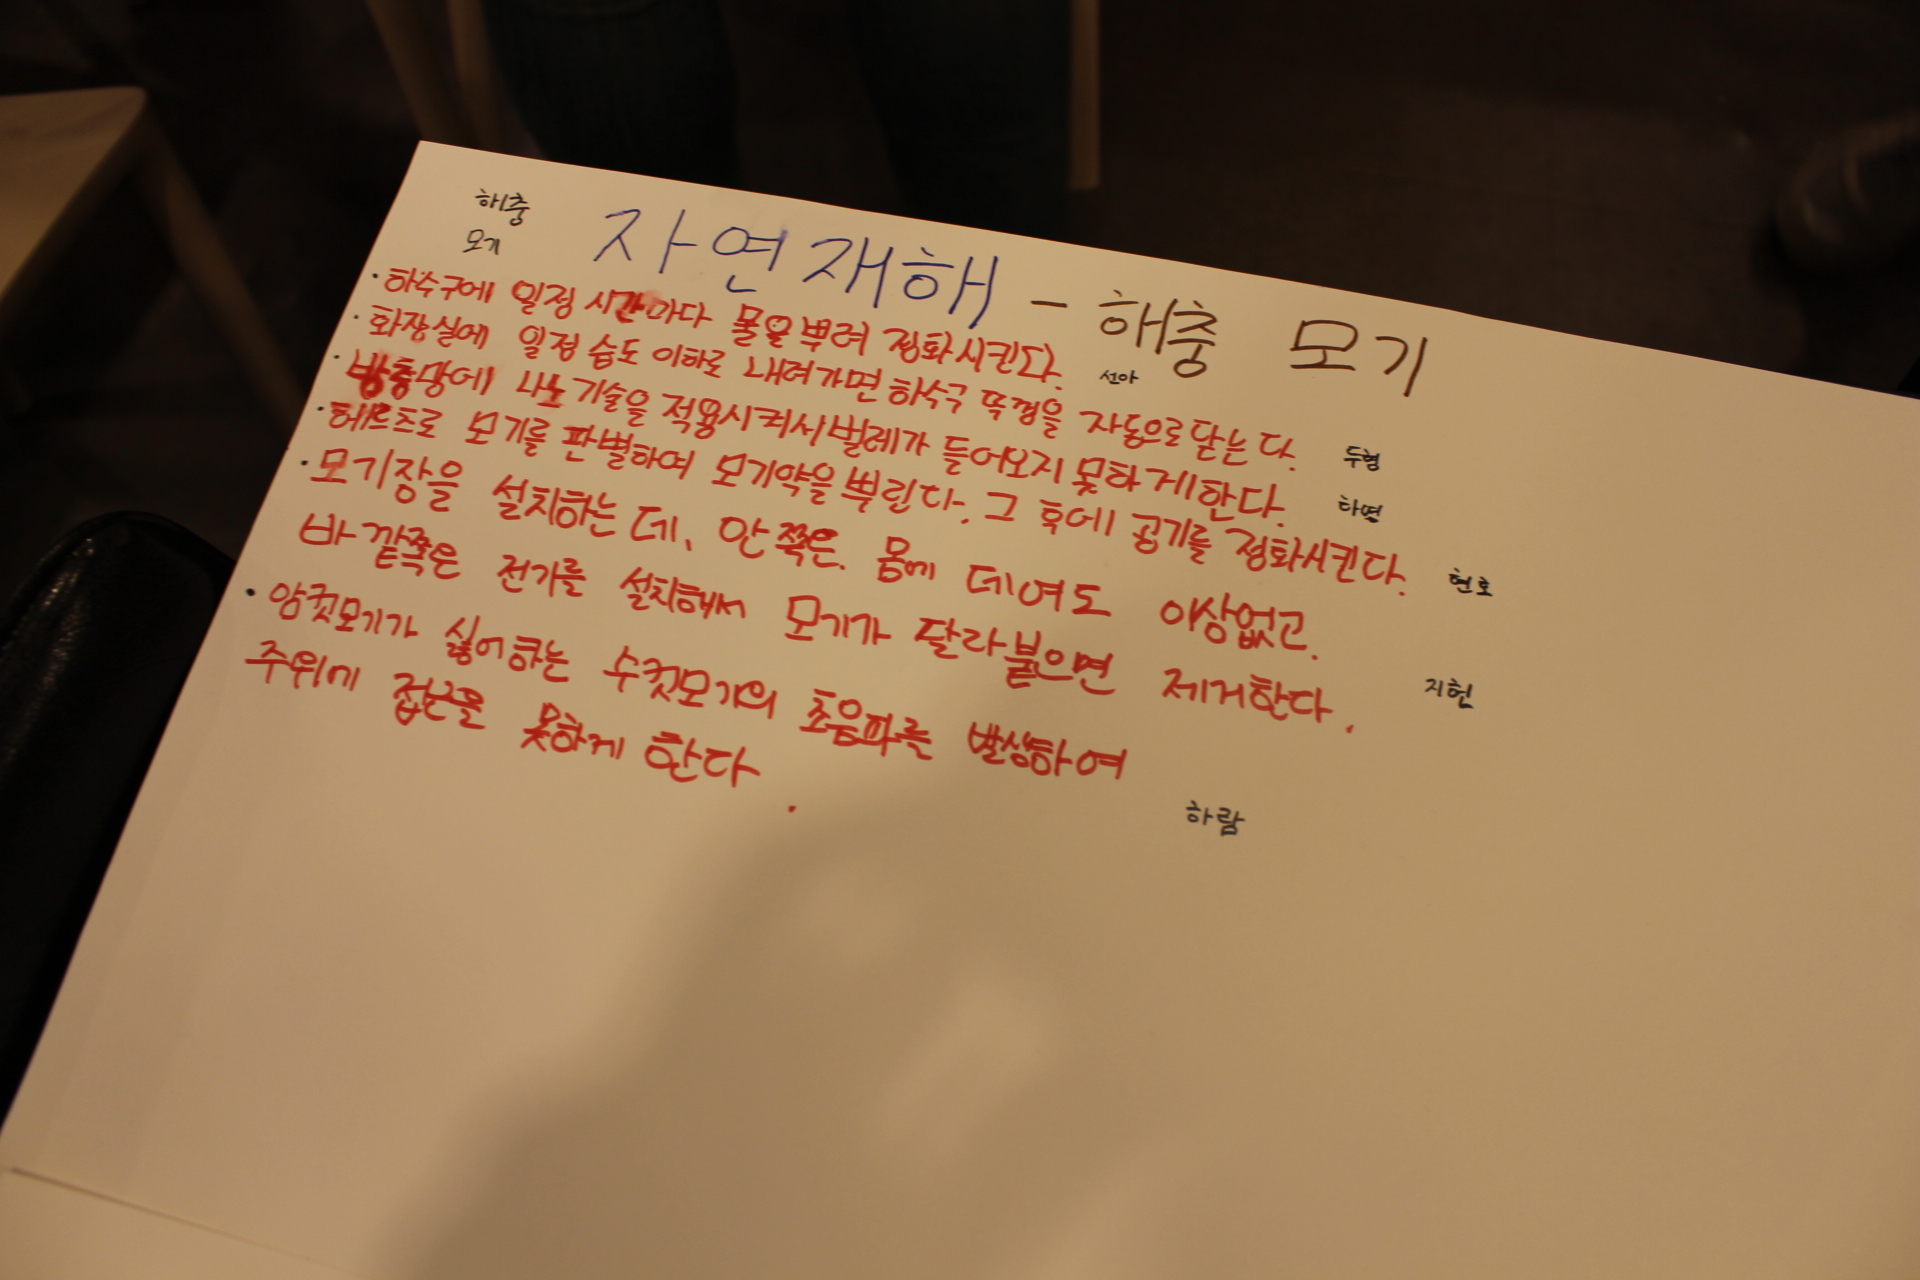 해충
모기
자연재해 - 해충 모기
· 하수구에 일정 시간마다 물을 뿌려 정화시킨다. 선아
· 화장실에 일정 습도 이하로 내려가면 하수구 뚜껑을 자동으로 닫는다. 두형
· 방충망에 나노기술을 적용시켜서 벌레가 들어오지 못하게 한다. 하연
· 헤르츠로 모기를 판별하여 모기약을 뿌린다. 그 후에 공기를 정화시킨다. 현호
· 모기장을 설치하는데, 안쪽은 몸에 데여도 이상없고.
바깥쪽은 전기를 설치해서 모기가 달라붙으면 제거한다. 지헌
· 암컷모기가 싫어하는 수컷모기의 초음파를 발생하여
주위에 접근을 못하게 한다.
하람